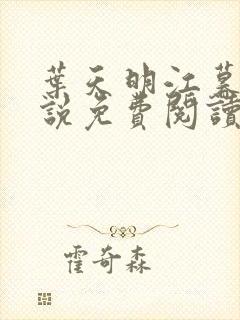 葉天明江慕
說免費閱讀
霍奇森